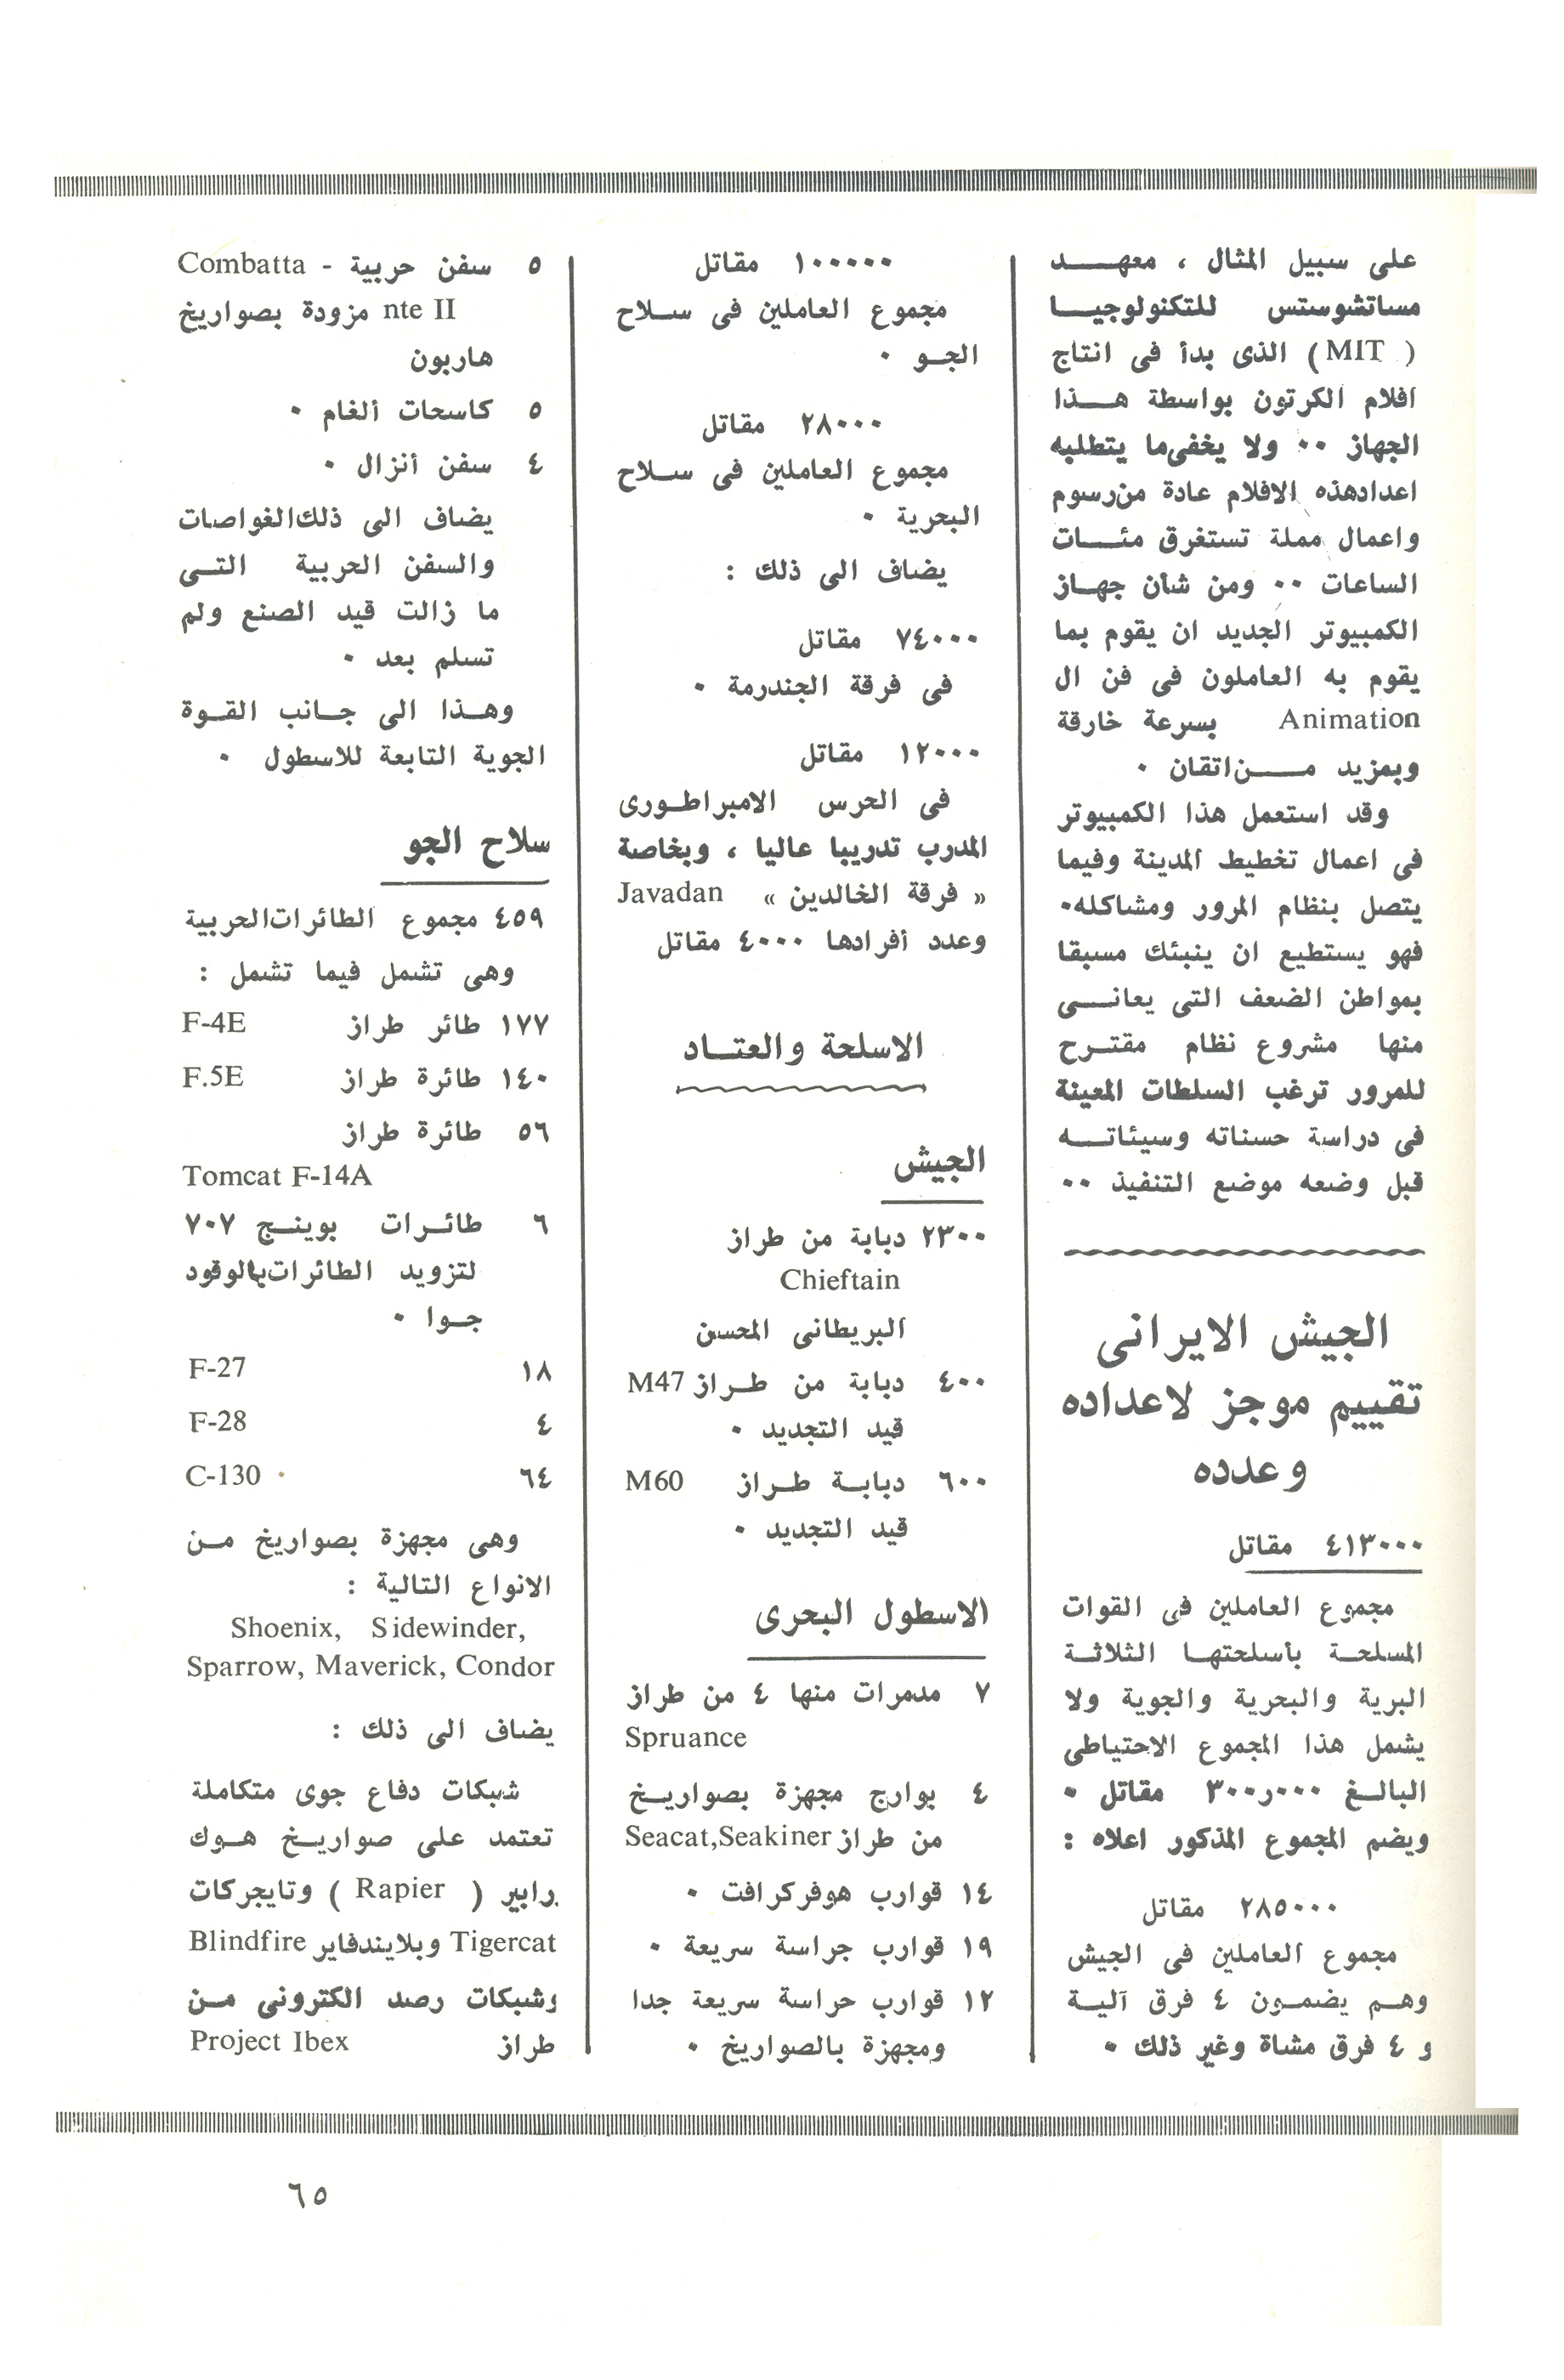 على سبيل المثال ، معهـــد
مساتشوستس للتكنولوجيـــا
( MIT ) الذى بدأ فى انتاج
افلام الكرتون بواسطة هـــذا
الجهاز ٠٠ ولا يخفى ما يتطلبه
اعدادهذه الافلام عادة من رسوم
واعمال مملة تستغرق مئـــات
الساعات ٠٠ ومن شأن جهـاز
الكمبيوتر الجديد ان يقوم بما
يقوم به العاملون فى فن ال
Animation بسرعة خارقة
وبمزيد مـــن اتقان ٠
وقد استعمل هذا الكمبيوتر
فى اعمال تخطيط المدينة وفيما
يتصل بنظام المرور ومشاكله٠
فهو يستطيع ان ينبئك مسبقا
بمواطن الضعف التى يعانـــى
منها مشروع نظام مقتــرح
للمرور ترغب السلطات المعينة
فى دراسة حسناته وسيئاتـــه
قبل وضعه موضع التنفيذ ٠٠
الجيش الايرانى
تقييم موجز لاعداده
وعدده
٤١٣٠٠٠ مقاتل
مجموع العاملين فى القوات
المسلحـة بأسلحتهـا الثلاثـة
البرية والبحرية والجوية ولا
يشمل هذا المجموع الاحتياطى
البالــغ ٣٠٠ر٠٠٠ مقاتل ٠
ويضم المجموع المذكور اعلاه :
٢٨٥٠٠٠ مقاتل
مجموع العاملين فى الجيش
وهــم يضمــون ٤ فرق آليــة
و ٤ فرق مشاة وغير ذلك ٠
١٠٠٠٠٠ مقاتل
مجموع العاملين فى ســلاح
الجــو ٠
٢٨٠٠٠ مقاتل
مجموع العاملين فى ســلاح
البحرية ٠
يضاف الى ذلك :
٧٤٠٠٠ مقاتل
فى فرقة الجندرمة ٠
١٢٠٠٠ مقاتل
فى الحرس الامبراطـورى
المدرب تدريبا عاليا ، وبخاصة
« فرقة الخالدين » Javadan
وعدد أفرادها ٤٠٠٠ مقاتل
الاسلحة والعتــاد
الجيش
٢٣٠٠ دبابة من طراز
Chieftain
البريطانى المحسن
٤٠٠ دبابة من طــراز M47
قيد التجديد ٠
٦٠٠ دبابــة طــراز M60
قيد التجديد ٠
الاسطول البحرى
٧ مدمرات منها ٤ من طراز
Spruance
٤ بوارج مجهزة بصواريــخ
من طراز Seacat,Seakiner
١٤ قوارب هوفركرافت ٠
١٩ قوارب جراسة سريعة ٠
١٢ قوارب حراسة سريعة جدا
ومجهزة بالصواريخ ٠
٥ سفن حربية - Combatta
nte II مزودة بصواريخ
هاربون
٥ كاسحات ألغام ٠
٤ سفن أنزال ٠
يضاف الى ذلك الغواصات
والسفن الحربية التــى
ما زالت قيد الصنع ولم
تسلم بعد ٠
وهــذا الى جــانب القــوة
الجوية التابعة للاسطول ٠
سلاح الجو
٤٥٩ مجموع الطائرات الحربية
وهى تشمل فيما تشمل :
١٧٧ طائر طراز F-4E
١٤٠ طائرة طراز F.5E
٥٦ طائرة طراز
Tomcat F-14A
٦ طائــرات بوينــج ٧٠٧
لتزويد الطائرات بالوقود
جــوا ٠
١٨ F-27
٤ F-28
٦٤ C-130
وهى مجهزة بصواريخ مــن
الانواع التالية :
Shoenix, Sidewinder,
Sparrow, Maverick, Condor
يضاف الى ذلك :
شبكات دفاع جوى متكاملة
تعتمد على صواريــخ هــوك
رابير ( Rapier ) وتايجركات
Tigercat وبلايندفاير Blindfire
وشبكات رصد الكترونى مــن
طراز Project Ibex
٦٥